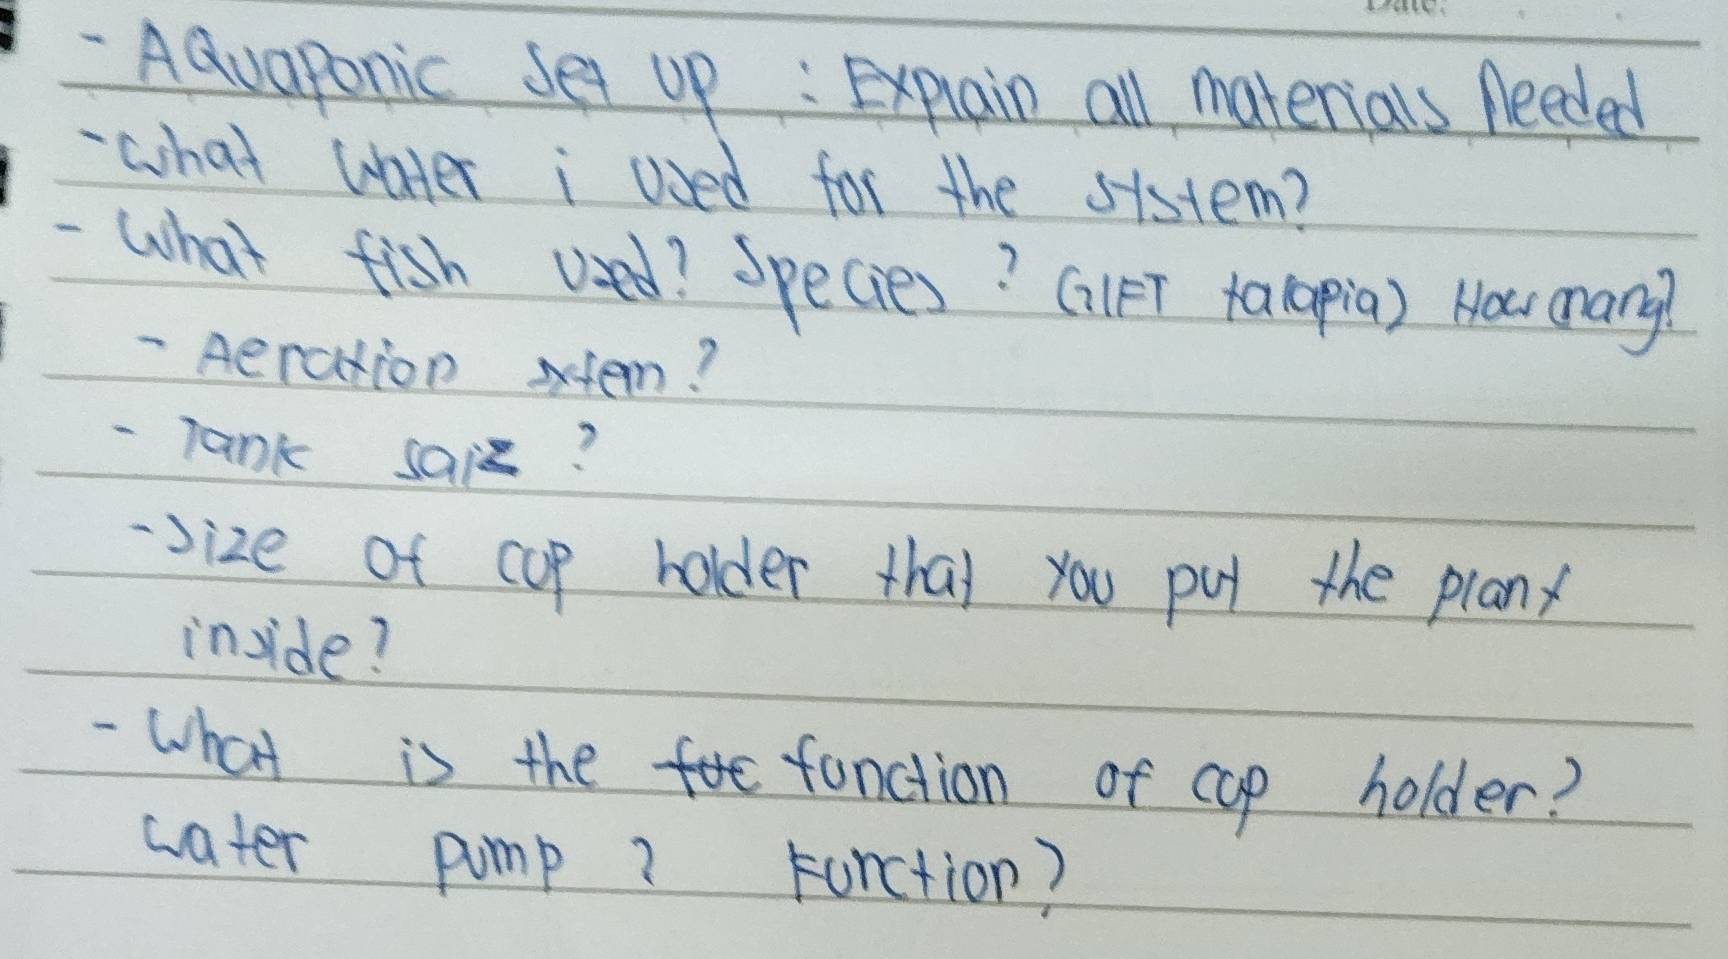 Date:
- AQuaponic Set up : Explain all materials Needed
- What Water i Used for the system?
- What fish Used? Species? GIFT talapia) How many?
- Aeration sxtem?
- Tank saiz?
- Size of cup holder that you put the plant
inside?
- What is the fuc function of cup holder?
water pump? Function?